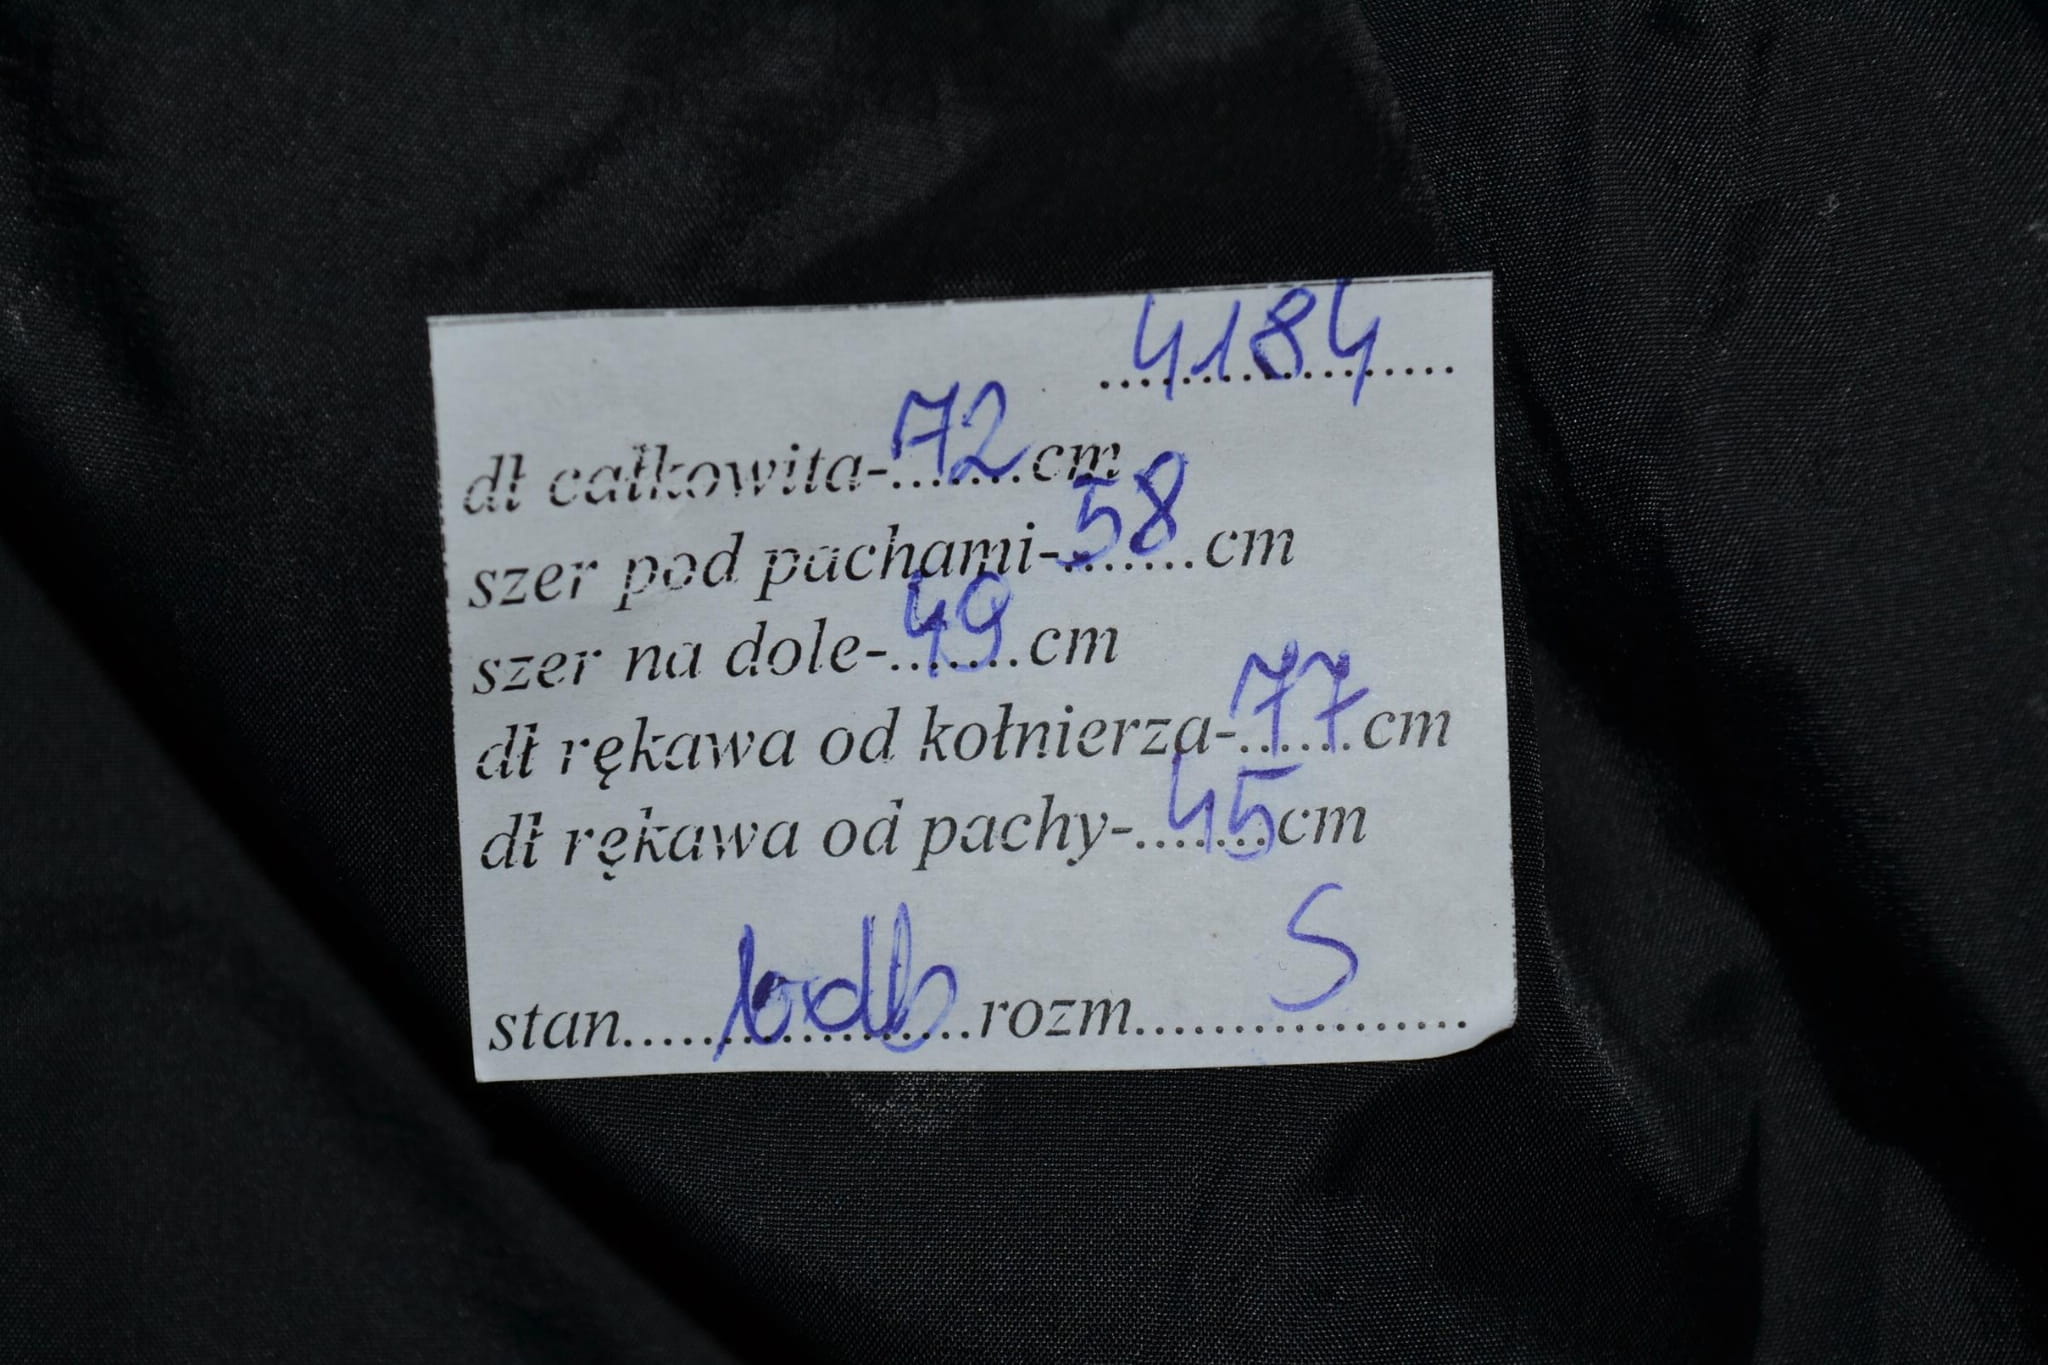 4184
dł całkowita-72cm
szer pod pachami-58cm
szer na dole-49cm
dł rękawa od kołnierza-77cm
dł rękawa od pachy-45cm
stan.......bdb.......rozm.......S.......